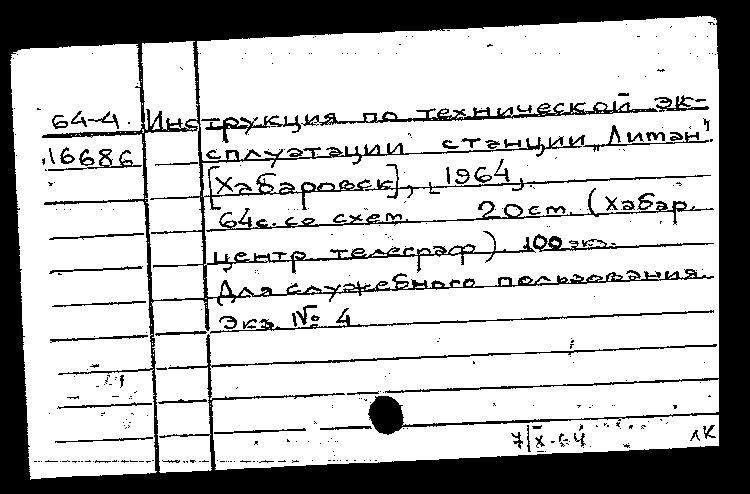 64-4. Инструкция по технической эк-
16686 сплуатации станции „Литан".
[Хабаровск], [1964]
64с. со схем. 20 ст. (Хабар.
центр телеграф). 100 экз.
Для служебного пользования.
Экз. № 4
7|X-64 лк